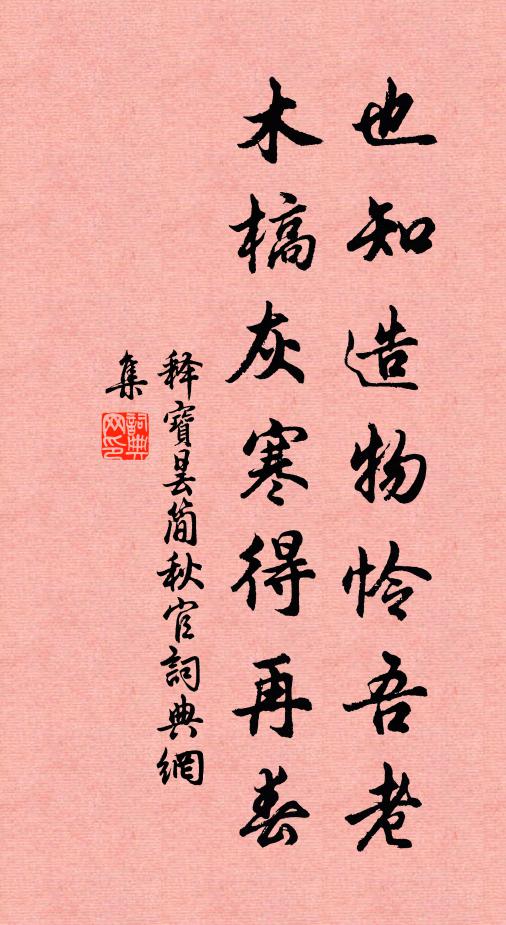 也知造物怜吾老
木槁灰寒得再春
释寶昙简秋官詞典網
集
詞典網印